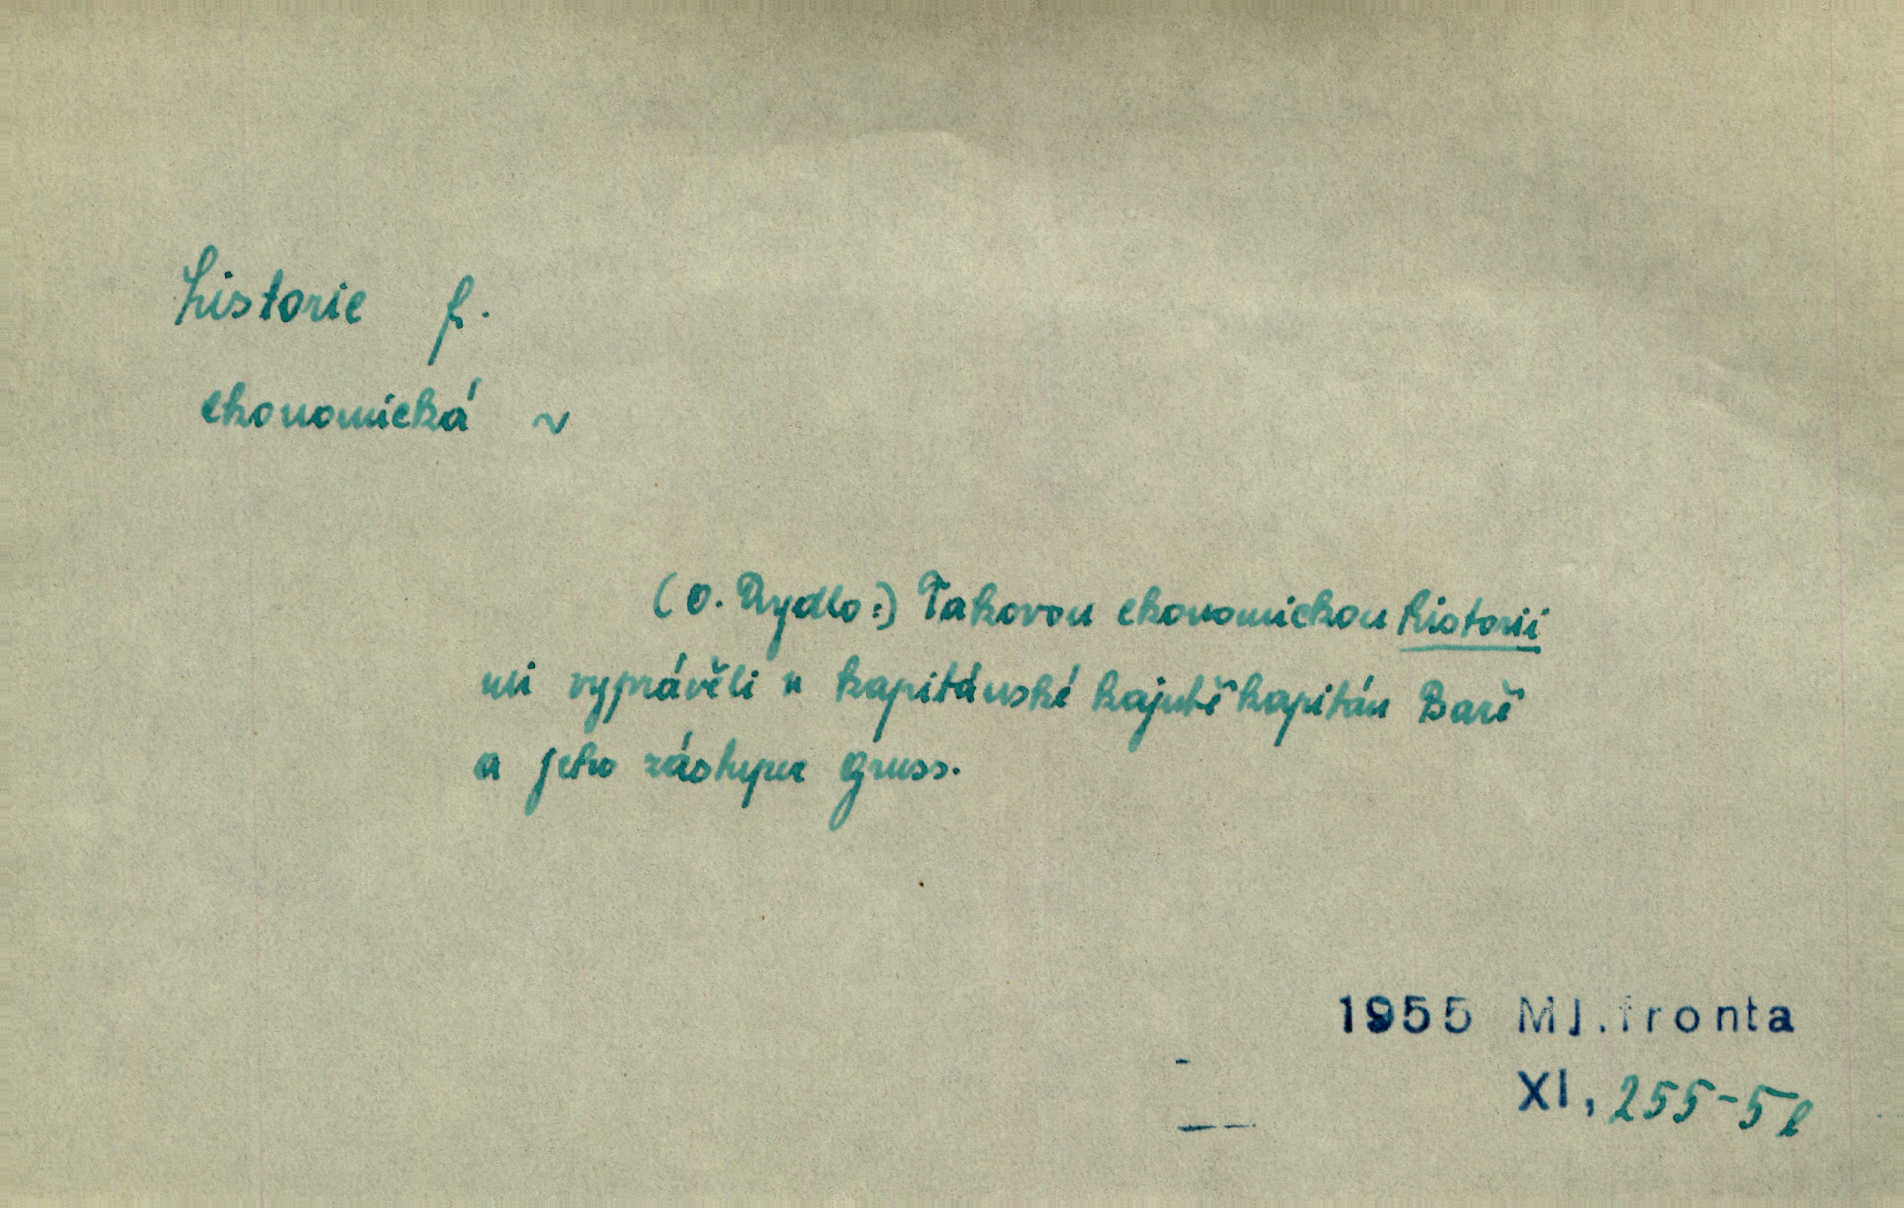 historie f.
ekonomická ~
(O. Rydlo:) Takovou ekonomickou historii
mi vyprávěli v kapitánské kajutě kapitán Bareš
a jeho zástupce Gruss.
1955 Ml.fronta
XI, 255-5